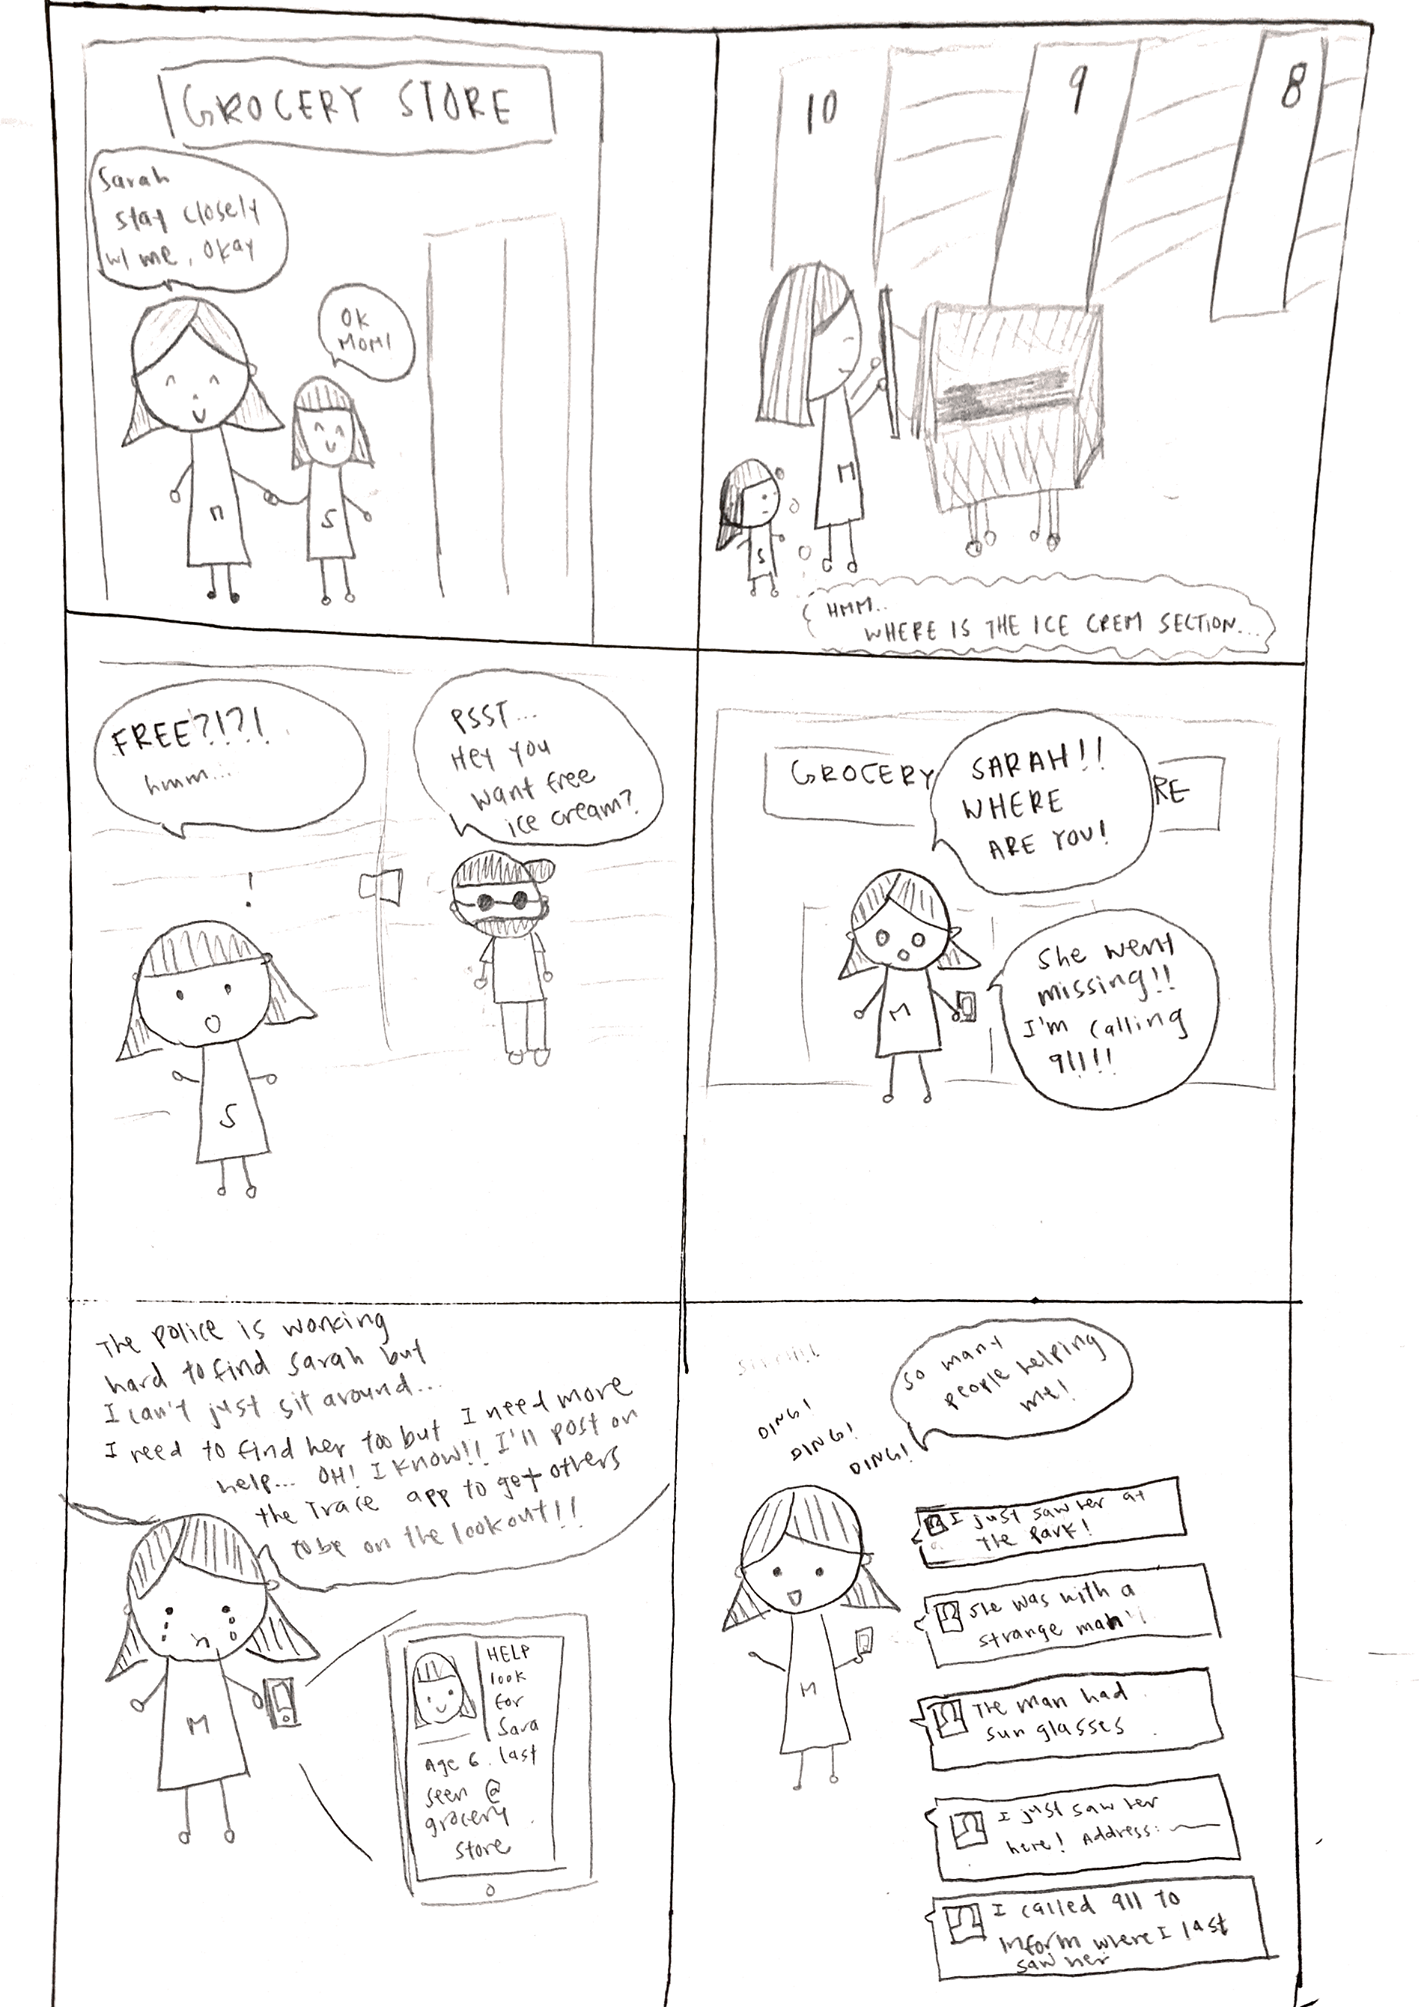 GROCERY STORE
Sarah
stay closely
w/ me, okay
OK
MOM!
n
S
10
9
8
M
S
HMM..
WHERE IS THE ICE CREM SECTION...
FREE?!?!
hmm...
PSST...
Hey you
want free
ice cream?
!
S
GROCERY
RE
SARAH!!
WHERE
ARE YOU!
She went
missing!!
I'm calling
911!!
M
The police is working
hard to find Sarah but
I can't just sit around...
I need to find her too but I need more
help... OH! I KNOW!! I'll post on
the Trace app to get others
to be on the lookout!!
M
HELP
look
for
Sara
Age 6. last
seen @
grocery
store
So many
people helping
me!
DING!
DING!
DING!
M
I just saw her at
the park!
She was with a
strange man!!
The man had
sun glasses
I just saw her
here! Address:
I called 911 to
inform where I last
saw her